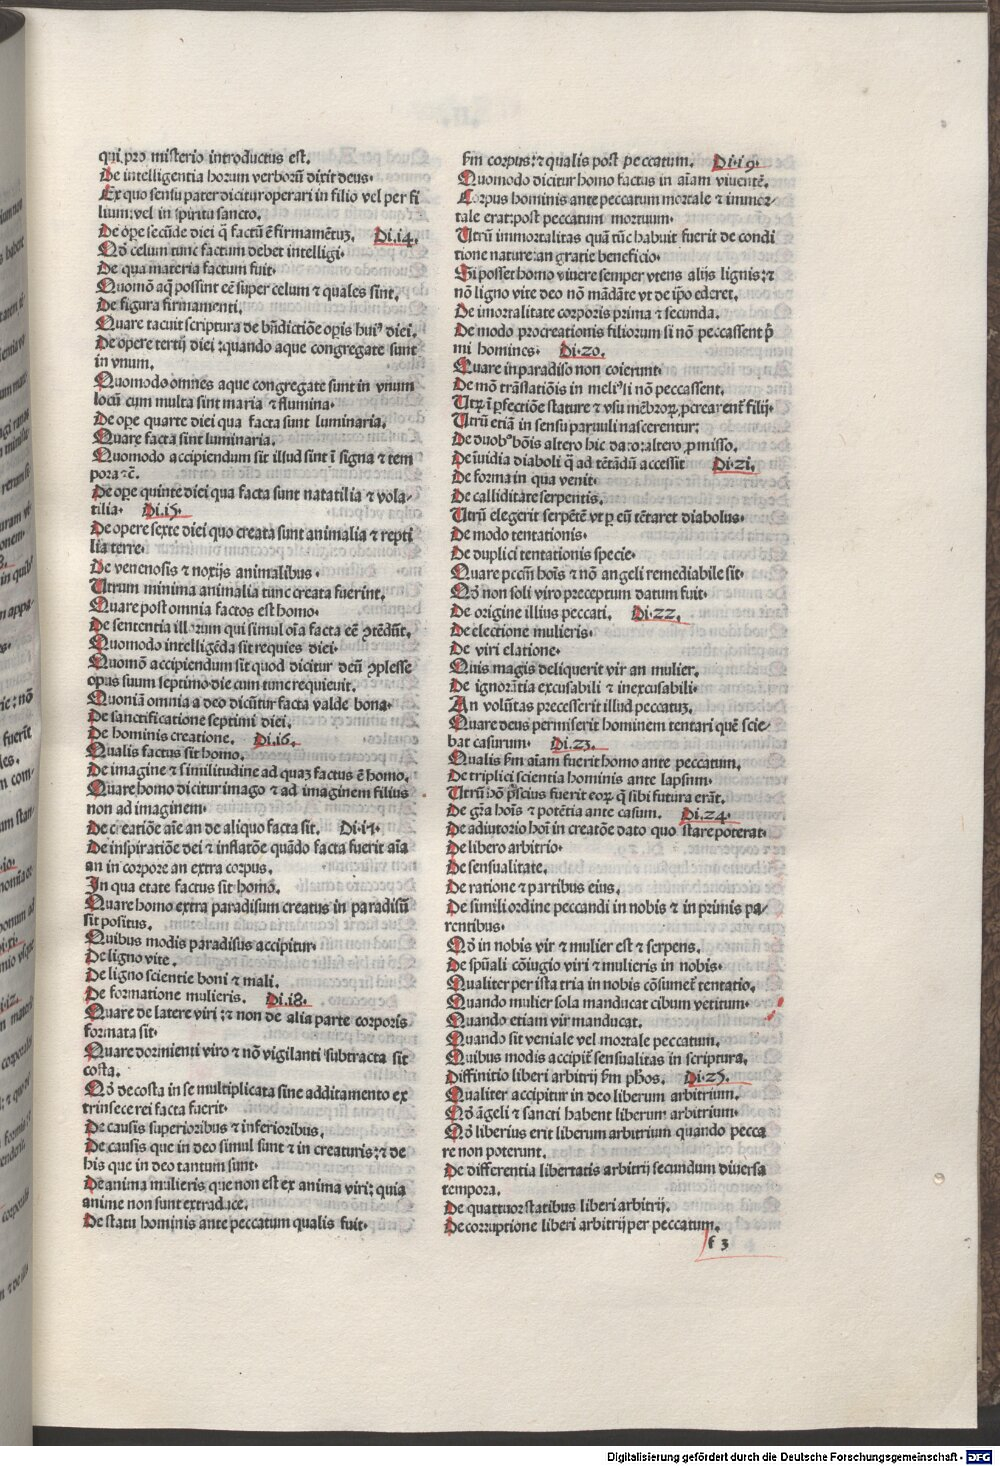 qui pro misterio introductus est.
De intelligentia horum verborū dixit deus·
Ex quo sensu pater dicitur operari in filio vel per fi
lium: vel in spiritu sancto.
De oꝑe secūde diei q̄ factū ē firmamētuꝫ. Di.i4.
Qō celum tunc factum debet intelligi·
De qua materia factum fuit·
Quomō aq̄ possint eē super celum ⁊ quales sint.
De figura firmamenti.
Quare tacuit scriptura de bn̄dictiōe oꝑis huiꝰ diei.
De opere tertij diei: quando aque congregate sunt
in vnum.
Quomodo omnes aque congregate sunt in vnum
locū cum multa sint maria ⁊ flumina·
De oꝑe quarte diei qua facta sunt luminaria.
Quare facta sunt luminaria.
Quomodo accipiendum sit illud sunt ī signa ⁊ tem
pora ⁊c̄.
De oꝑe quinte diei qua facta sunt natatilia ⁊ vola-
tilia· Di.i5.
De opere sexte diei quo creata sunt animalia ⁊ repti
lia terre·
De venenosis ⁊ noxijs animalibus·
Utrum minima animalia tunc creata fuerint.
Quare post omnia factos est homo·
De sententia illorum qui simul oīa facta eē ꝯtēdūt.
Quomodo intelligēda sit requies diei·
Quomō accipiendum sit quod dicitur deū ꝯplesse
opus suum septimo die cum tunc requieuit.
Quoniā omnia a deo dicūtur facta valde bona·
De sanctificatione septimi diei.
De hominis creatione. Di.i6.
Qualis factus sit homo.
De imagine ⁊ similitudine ad quaꝫ factus ē homo.
Quare homo dicitur imago ⁊ ad imaginem filius
non ad imaginem·
De creatiōe aīe an de aliquo facta sit. Di·i7·
De inspiratiōe dei ⁊ inflatōe quādo facta fuerit aīa
an in corpore an extra corpus.
In qua etate factus sit homō.
Quare homo extra paradisum creatus in paradisū
sit positus.
Quibus modis paradisus accipitur·
De ligno vite.
De ligno scientie boni ⁊ mali.
De formatione mulieris. Di.i8.
Quare de latere viri: ⁊ non de alia parte corporis
formata sit·
Quare dormienti viro ⁊ nō vigilanti subtracta sit
costa.
Qō de costa in se multiplicata sine additamento ex
trinsece rei facta fuerit·
De causis superioribus ⁊ inferioribus.
De causis que in deo simul sunt ⁊ in creaturis: ⁊ de
his que in deo tantum sunt·
De anima mulieris que non est ex anima viri: quia
anime non sunt extraduce.
De statu hominis ante peccatum qualis fuit·
ẜm corpus: ⁊ qualis post peccatum. Di·i9.
Quomodo dicitur homo factus in aīam viuentē.
Corpus hominis ante peccatum mortale ⁊ immor-
tale erat: post peccatum mortuum·
Utrū immortalitas quā tūc habuit fuerit de condi
tione nature: an gratie beneficio·
Si posset homo viuere semper vtens alijs lignis: ⁊
nō ligno vite deo nō mādāte vt de ip̄o ederet.
De imortalitate corporis prima ⁊ secunda.
De modo procreationis filiorum si nō peccassent p̄
mi homines· Di·20.
Quare in paradiso non coierunt·
De mō trāslatiōis in meliꝰ si nō peccassent.
Utꝝ ī ꝑfectiōe stature ⁊ vsu mēbroꝝ ꝓcrearent̄ filij·
Utrū etiā in sensu paruuli nascerentur:
De duobꝰ bōis altero hic dato: altero ꝓmisso.
De īuidia diaboli q̄ ad tētādū accessit Di·2i.
De forma in qua venit·
De calliditate serpentis.
Utrū elegerit serpētē vt ꝑ eū tētaret diabolus·
De modo tentationis·
De duplici tentationis specie·
Quare pccm̄ hoīs ⁊ nō angeli remediabile sit·
Qō non soli viro preceptum datum fuit·
De origine illius peccati. Di·22.
De electione mulieris·
De viri elatione·
Quis magis deliquerit vir an mulier.
De ignorātia excusabili ⁊ inexcusabili·
An volūtas precesserit illud peccatuꝫ.
Quare deus permiserit hominem tentari quē scie-
bat casurum· Di.23.
Qualis ẜm aīam fuerit homo ante peccatum.
De triplici scientia hominis ante lapsum·
Utrū hō p̄scius fuerit eoꝝ q̄ sibi futura erāt.
De gr̄a hoīs ⁊ potētia ante casum. Di.24·
De adiutorio hoī in creatōe dato quo stare poterat·
De libero arbitrio·
De sensualitate.
De ratione ⁊ partibus eius.
De simili ordine peccandi in nobis ⁊ in primis pa-
rentibus·
Qō in nobis vir ⁊ mulier est ⁊ serpens.
De sp̄uali cōiugio viri ⁊ mulieris in nobis·
Qualiter per ista tria in nobis cōsumet̄ tentatio.
Quando mulier sola manducat cibum vetitum·
Quando etiam vir manducat.
Quando sit veniale vel mortale peccatum.
Quibus modis accipit̄ sensualitas in scriptura.
Diffinitio liberi arbitrij ẜm ph̄os. Di·25.
Qualiter accipitur in deo liberum arbitrium.
Qō āgeli ⁊ sancti habent liberum arbitrium·
Qō liberius erit liberum arbitrium quando pecca
re non poterunt.
De differentia libertatis arbitrij secundum diuersa
tempora.
De quattuor statibus liberi arbitrij.
De corruptione liberi arbitrij per peccatum.
f 3
Digitalisierung gefördert durch die Deutsche Forschungsgemeinschaft - DFG